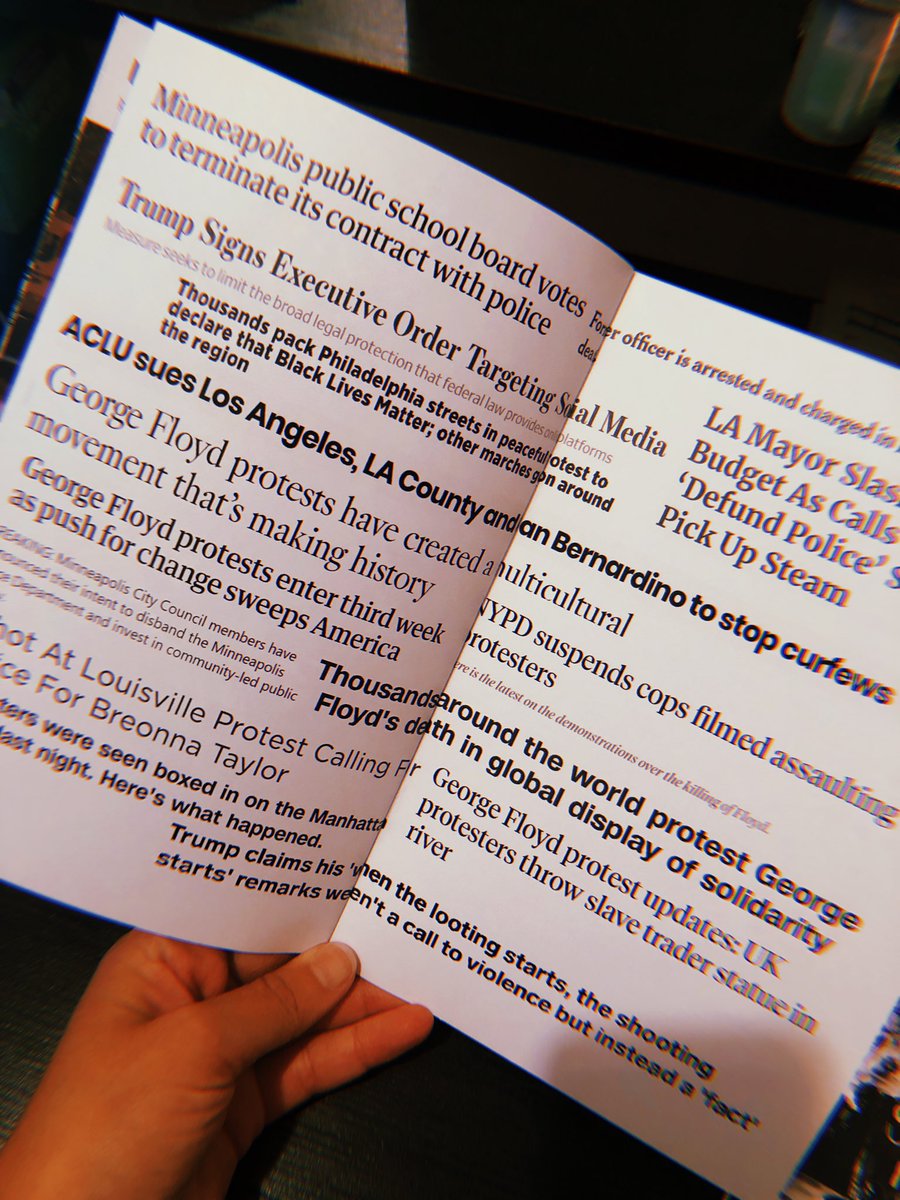 Minneapolis public school board votes
to terminate its contract with police
Former officer is arrested and charged in
Trump Signs Executive Order Targeting Social Media
Measure seeks to limit the broad legal protection that federal law provides online platforms
Thousands pack Philadelphia streets in peaceful protest to
declare that Black Lives Matter; other marches go on around
the region
LA Mayor
Budget As Calls
‘Defund Police’
Pick Up Steam
ACLU sues Los Angeles, LA County and San Bernardino to stop curfews
George Floyd protests have created a multicultural
movement that’s making history
George Floyd protests enter third week
as push for change sweeps America
NYPD suspends cops filmed assaulting
protesters
Here is the latest on the demonstrations over the killing of Floyd.
Minneapolis City Council members have
their intent to disband the Minneapolis
Department and invest in community-led public
Thousands around the world protest George
Floyd's death in global display of solidarity
At Louisville Protest Calling For
For Breonna Taylor
were seen boxed in on the
last night. Here's what happened.
George Floyd protest updates: UK
protesters throw slave trader statue in
river
Trump claims his 'when the looting starts, the shooting
starts' remarks weren't a call to violence but instead a 'fact'